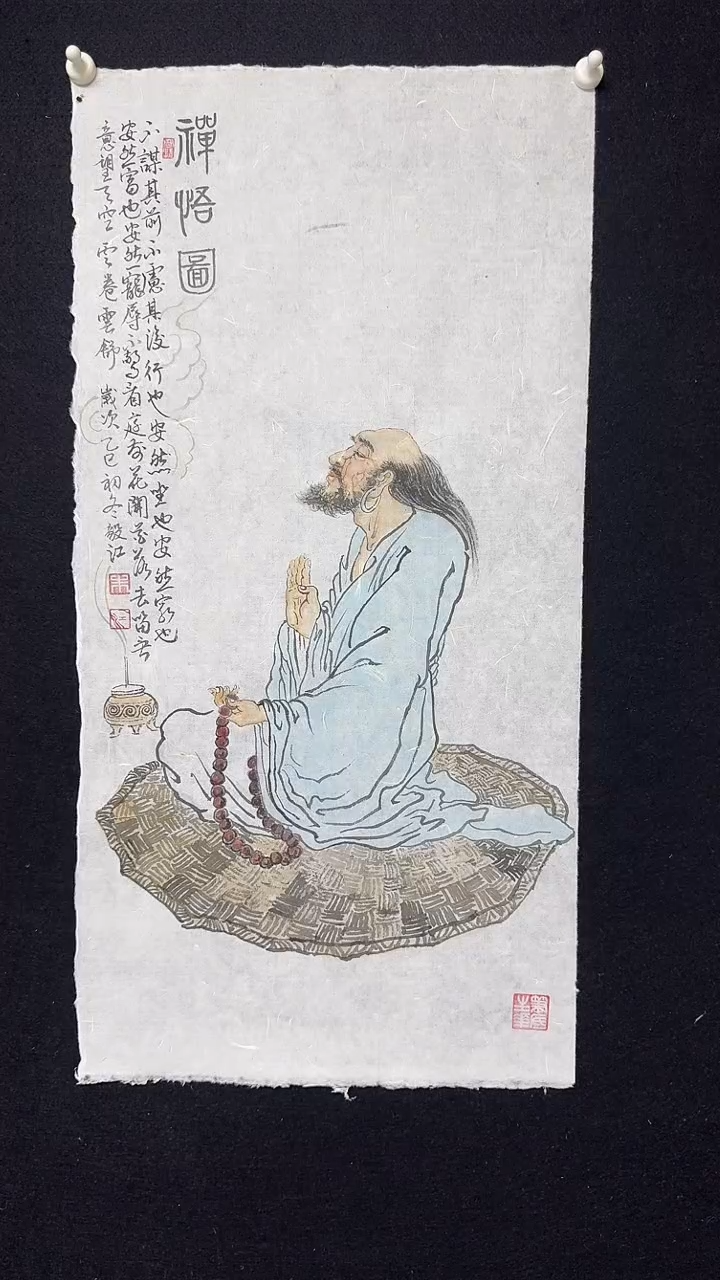 禪悟圖
不謀其前不慮其後行也安然坐也安然窮也
安然富也安然寵辱不驚看庭前花開花落去留无
意望天空云卷雲舒 歲次乙巳初冬毅江